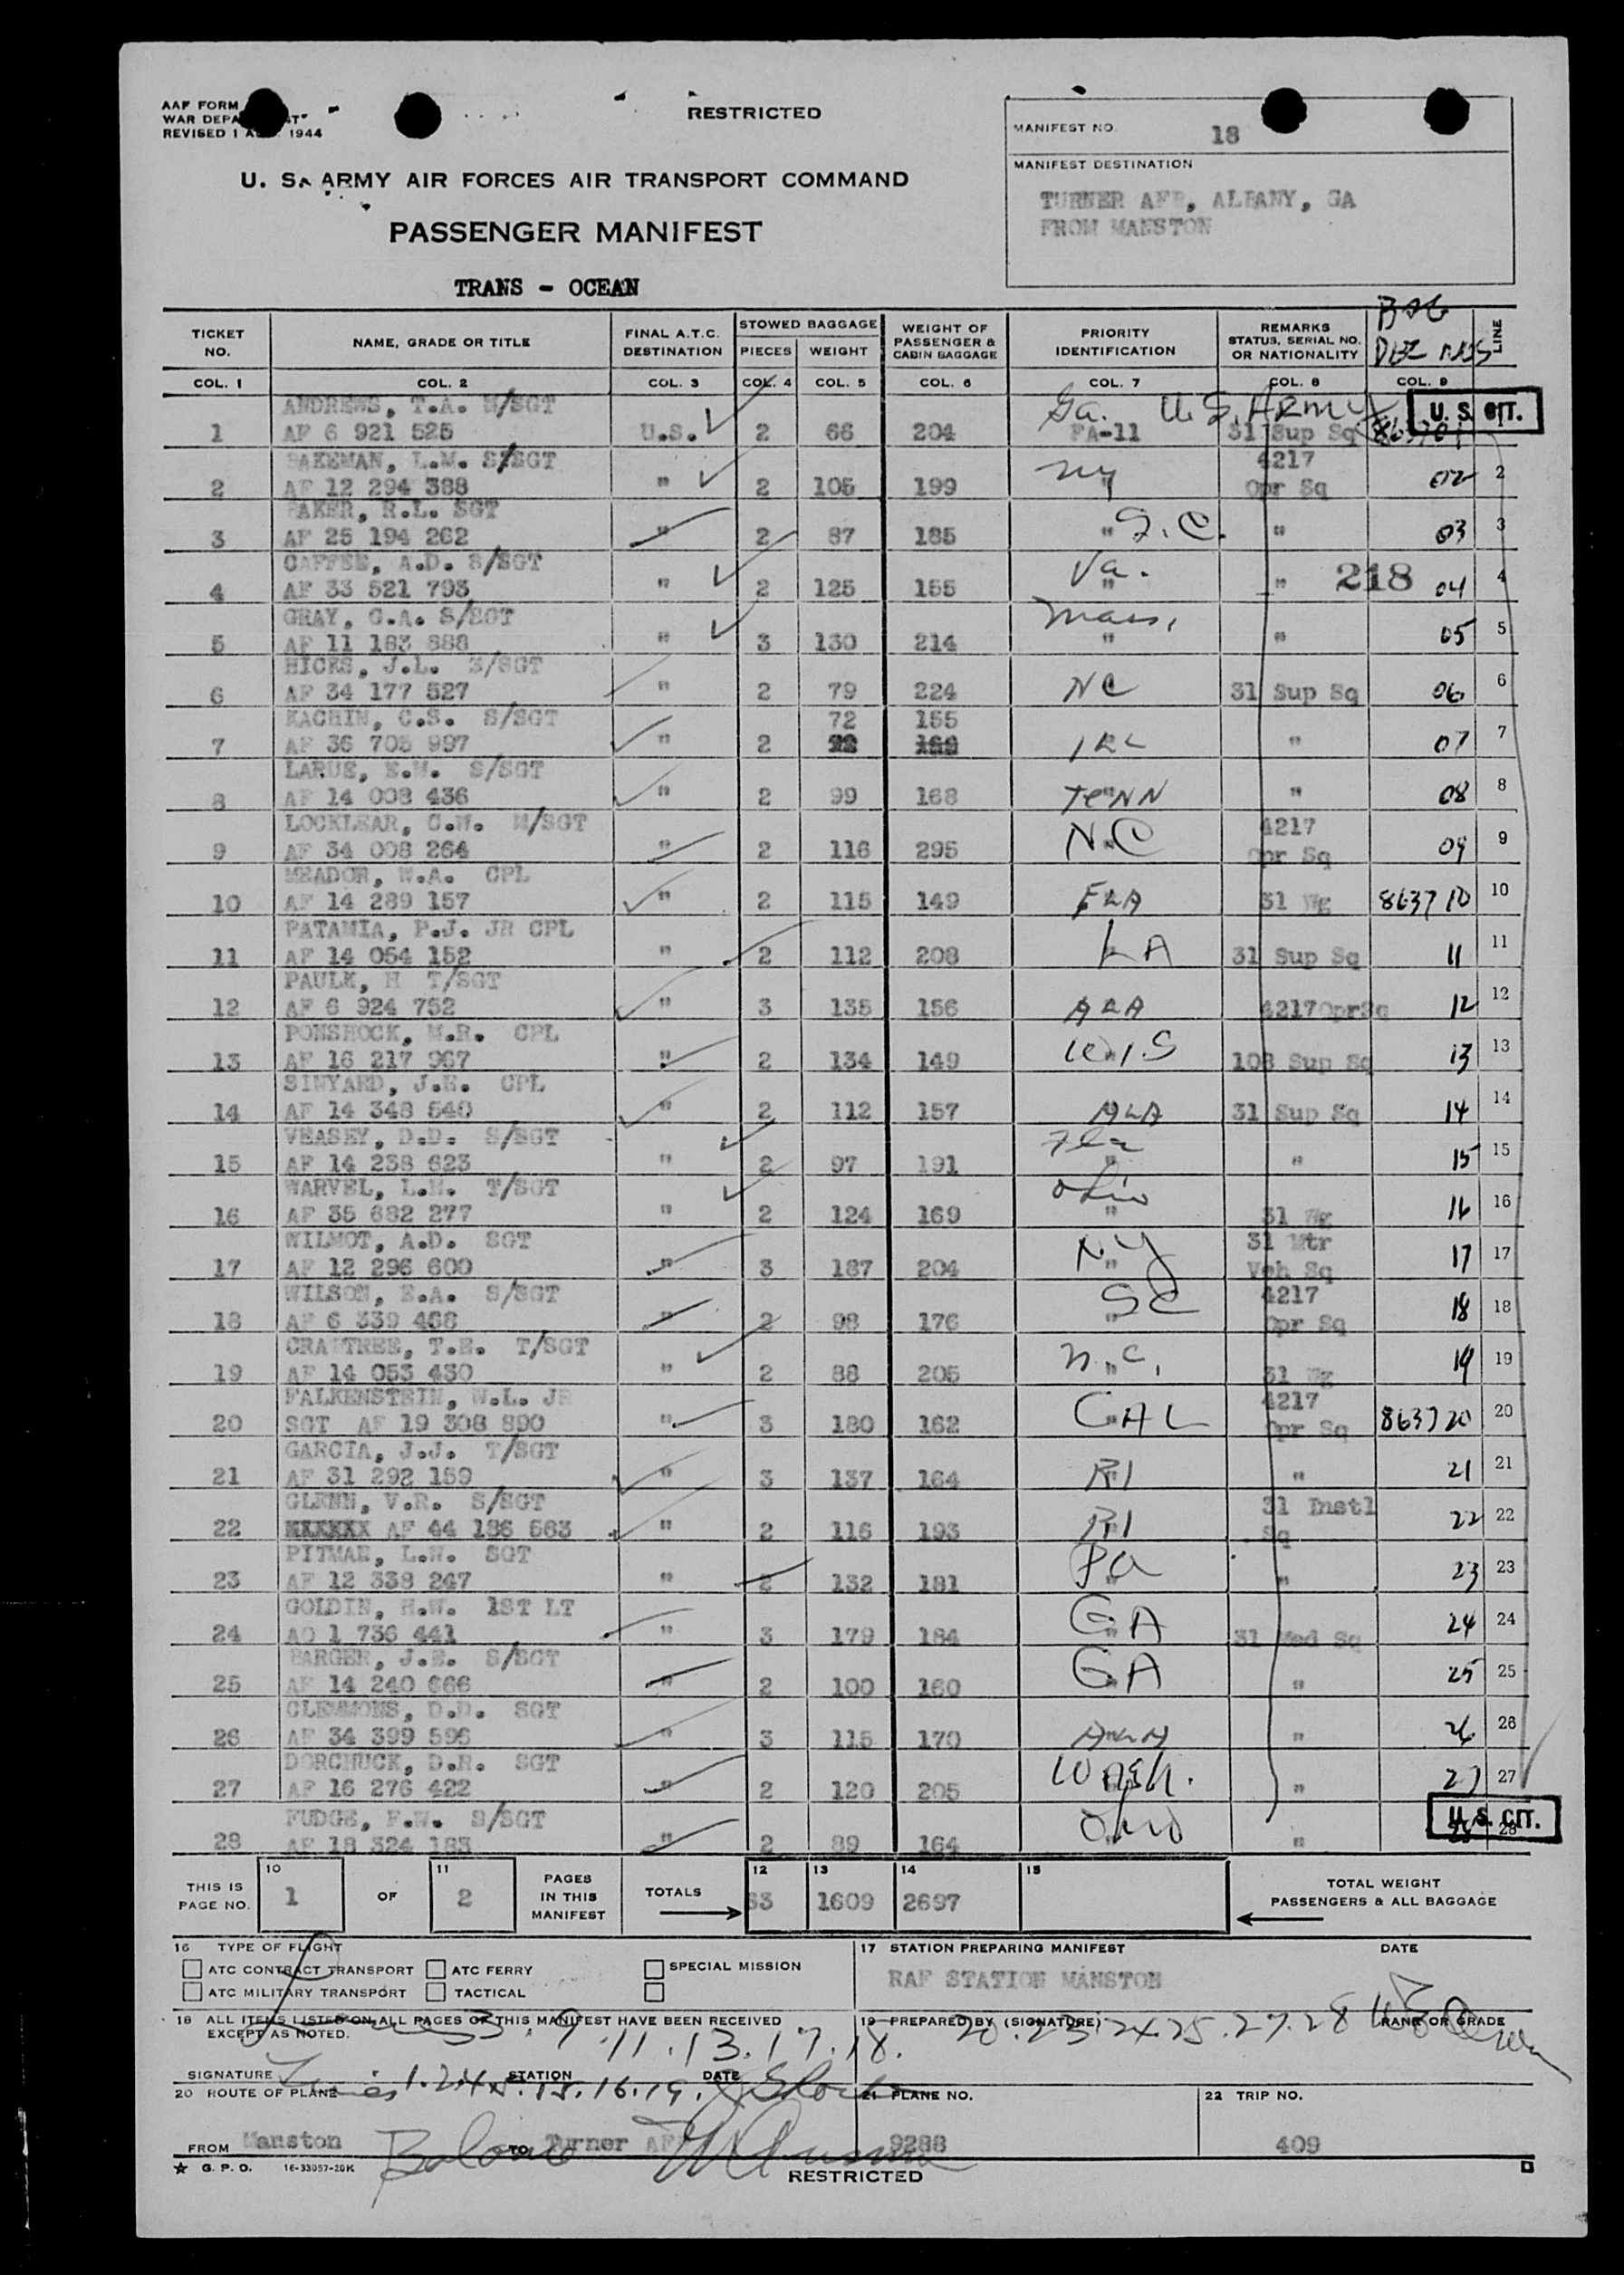 AAF FORM
WAR DEPA
REVISED 1 A 1944
RESTRICTED
MANIFEST NO. 18
MANIFEST DESTINATION
TURNER AFB, ALBANY, GA
FROM MANSTON
U. S. ARMY AIR FORCES AIR TRANSPORT COMMAND
PASSENGER MANIFEST
TRANS - OCEAN
TICKET NO. NAME, GRADE OR TITLE FINAL A.T.C. DESTINATION STOWED BAGGAGE PIECES WEIGHT WEIGHT OF PASSENGER & CABIN BAGGAGE PRIORITY IDENTIFICATION REMARKS STATUS, SERIAL NO. OR NATIONALITY LINE
COL. 1 COL. 2 COL. 3 COL. 4 COL. 5 COL. 6 COL. 7 COL. 8 COL. 9
ANDREWS, T.A. M/SGT Ga. U.S. Army U. S. CIT.
1 AF 6 921 525 U.S. 2 66 204 FA-11 31 Sup Sq 863701
BAKEMAN, L.M. S/SGT NY 4217
2 AF 12 294 388 " 2 105 199 Opr Sq 02 2
BAKER, R.L. SGT
3 AF 25 194 262 " 2 87 185 " S.C. " 03 3
CAFFEE, A.D. S/SGT Va. 218
4 AF 33 521 793 " 2 125 155 " " 04 4
GRAY, C.A. S/SGT Mass.
5 AF 11 183 888 " 3 130 214 " " 05 5
HICKS, J.L. S/SGT
6 AF 34 177 527 " 2 79 224 NC 31 Sup Sq 06 6
KACHIN, C.S. S/SGT 72 155
7 AF 36 705 997 " 2 ILL " 07 7
LARUE, E.W. S/SGT
8 AF 14 008 436 " 2 99 168 TENN " 08 8
LOCKLEAR, C.W. M/SGT 4217
9 AF 34 008 264 " 2 116 295 N.C Opr Sq 09 9
MEADOR, W.A. CPL
10 AF 14 289 157 " 2 115 149 FLA 31 Wg 863710 10
PATAMIA, P.J. JR CPL
11 AF 14 064 152 " 2 112 208 LA 31 Sup Sq 11 11
PAULK, H T/SGT
12 AF 6 924 752 " 3 135 156 ALA 4217OprSq 12 12
PONSHOCK, M.R. CPL
13 AF 16 217 967 " 2 134 149 WIS 108 Sup Sq 13 13
SINYARD, J.E. CPL
14 AF 14 348 540 " 2 112 157 ALA 31 Sup Sq 14 14
VEASEY, D.D. S/SGT Fla
15 AF 14 238 623 " 2 97 191 " " 15 15
WARVEL, L.H. T/SGT Ohio
16 AF 35 682 277 " 2 124 169 " 31 Wg 16 16
WILMOT, A.D. SGT 31 Mtr
17 AF 12 296 600 " 3 187 204 N.Y Veh Sq 17 17
WILSON, E.A. S/SGT 4217
18 AF 6 339 468 " 2 98 176 SC Opr Sq 18 18
CRABTREE, T.E. T/SGT
19 AF 14 053 430 " 2 88 205 N.C. 31 Wg 19 19
FALKENSTEIN, W.L. JR 4217
20 SGT AF 19 308 890 " 3 180 162 CAL Opr Sq 863720 20
GARCIA, J.J. T/SGT
21 AF 31 292 159 " 3 137 164 RI " 21 21
GLENN, V.R. S/SGT 31 Instl
22 XXXXXX AF 44 186 563 " 2 116 193 RI Sq 22 22
PITMAN, L.W. SGT
23 AF 12 338 247 " 2 132 181 Pa " 23 23
GOLDIN, H.W. 1ST LT
24 AO 1 736 441 " 3 179 184 GA 31 Med Sq 24 24
BARGER, J.E. S/SGT
25 AF 14 240 666 " 2 100 160 GA " 25 25
CLEMMONS, D.D. SGT
26 AF 34 399 596 " 3 115 170 ALA " 26 26
DORCHUCK, D.R. SGT
27 AF 16 276 422 " 2 120 205 Wash. " 27 27
FUDGE, F.W. S/SGT U. S. CIT.
28 AF 18 324 183 " 2 89 164 Ohio " 28
THIS IS PAGE NO. 10 1 OF 11 2 PAGES IN THIS MANIFEST TOTALS 12 63 13 1609 14 2697 15 TOTAL WEIGHT PASSENGERS & ALL BAGGAGE
16 TYPE OF FLIGHT
ATC CONTRACT TRANSPORT ATC FERRY SPECIAL MISSION
ATC MILITARY TRANSPORT TACTICAL
17 STATION PREPARING MANIFEST DATE
RAF STATION MANSTON
18 ALL ITEMS LISTED ON ALL PAGES OF THIS MANIFEST HAVE BEEN RECEIVED EXCEPT AS NOTED.
3. 9. 11. 13. 17. 18.
19 PREPARED BY (SIGNATURE) RANK OR GRADE
20. 23. 24. 25. 27. 28
SIGNATURE STATION DATE
1. 2. 4. 5. 15. 16. 19.
20 ROUTE OF PLANE
21 PLANE NO.
22 TRIP NO.
FROM Manston TO Turner AFB
9288
409
G. P. O. 16-33057-20K
RESTRICTED